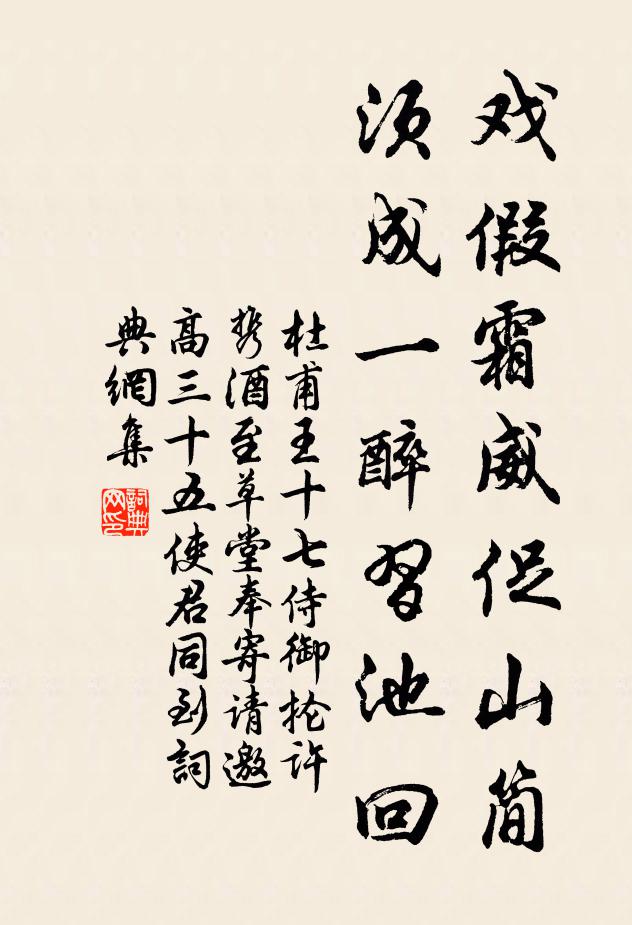 戏假霜威促山简
须成一醉习池回
杜甫王十七侍御抡许
携酒至草堂奉寄请邀
高三十五使君同到詞
典網集
詞典
网印